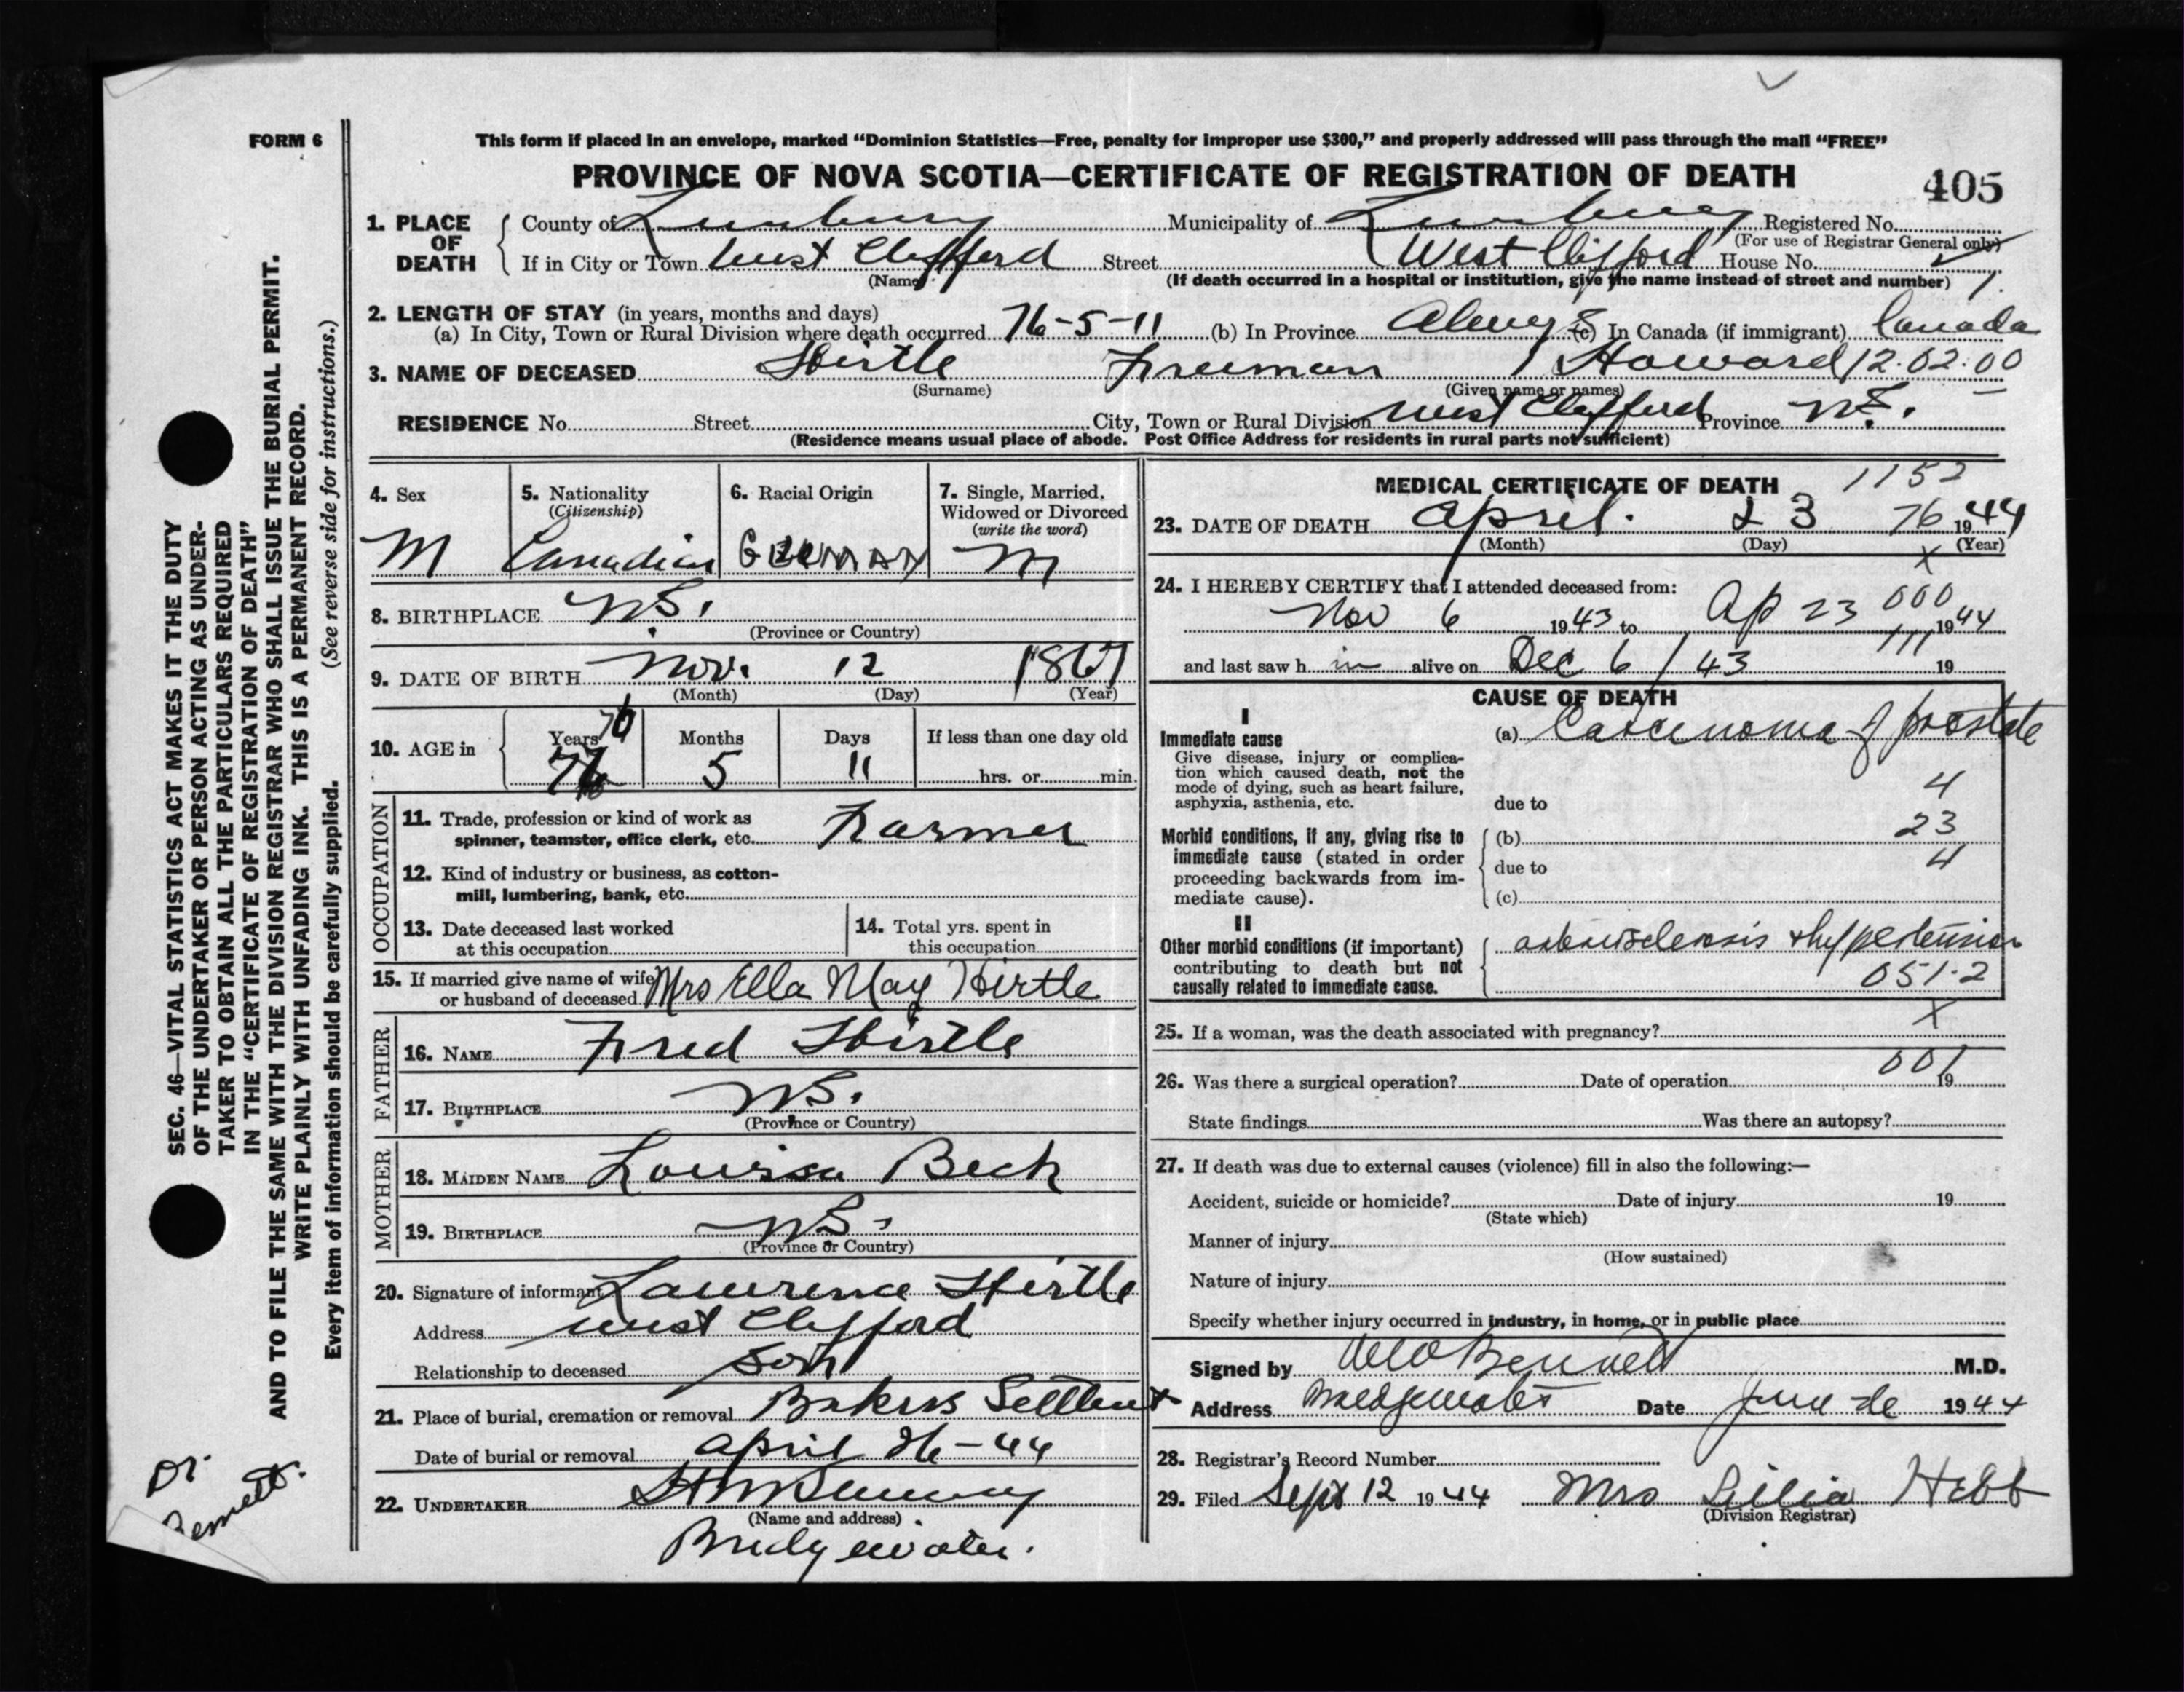 FORM 6
This form if placed in an envelope, marked “Dominion Statistics—Free, penalty for improper use $300,” and properly addressed will pass through the mail “FREE”
PROVINCE OF NOVA SCOTIA—CERTIFICATE OF REGISTRATION OF DEATH
405
1. PLACE OF DEATH
County of Lunenburg Municipality of Lunenburg Registered No.
(For use of Registrar General only)
If in City or Town West Clifford Street West Clifford House No.
(Name) (If death occurred in a hospital or institution, give the name instead of street and number) 1.
2. LENGTH OF STAY (in years, months and days)
(a) In City, Town or Rural Division where death occurred 76-5-11 (b) In Province Always (c) In Canada (if immigrant) Canada
3. NAME OF DECEASED Hirtle Freeman Howard 12.02.00
(Surname) (Given name or names)
RESIDENCE No. Street City, Town or Rural Division West Clifford Province N.S.
(Residence means usual place of abode. Post Office Address for residents in rural parts not sufficient)
4. Sex
M
5. Nationality
(Citizenship)
Canadian
6. Racial Origin
GERMAN
7. Single, Married, Widowed or Divorced
(write the word)
M
8. BIRTHPLACE N.S.
(Province or Country)
9. DATE OF BIRTH Nov. 12 1867
(Month) (Day) (Year)
10. AGE in
Years 76 Months Days If less than one day old
76 5 11 hrs. or min.
OCCUPATION
11. Trade, profession or kind of work as
spinner, teamster, office clerk, etc. Farmer
12. Kind of industry or business, as cotton-
mill, lumbering, bank, etc.
13. Date deceased last worked
at this occupation
14. Total yrs. spent in
this occupation
15. If married give name of wife
or husband of deceased Mrs Ella May Hirtle
FATHER
16. NAME Fred Hirtle
17. BIRTHPLACE N.S.
(Province or Country)
MOTHER
18. MAIDEN NAME Louisa Beck
19. BIRTHPLACE N.S.
(Province or Country)
20. Signature of informant Lawrence Hirtle
Address West Clifford
Relationship to deceased Son
21. Place of burial, cremation or removal Bakers Settlemt
Date of burial or removal April 26-44
22. UNDERTAKER
(Name and address)
Bridgewater.
MEDICAL CERTIFICATE OF DEATH 1152
23. DATE OF DEATH April. 23 76 1944
(Month) (Day) (Year)
X
24. I HEREBY CERTIFY that I attended deceased from:
000
Nov 6 1943 to Ap 23 1944
111
and last saw h im alive on Dec 6/43 19
CAUSE OF DEATH
I
Immediate cause
Give disease, injury or complica-
tion which caused death, not the
mode of dying, such as heart failure,
asphyxia, asthenia, etc.
(a) Carcinoma of prostate
4
due to
Morbid conditions, if any, giving rise to
immediate cause (stated in order
proceeding backwards from im-
mediate cause).
23
(b)
4
due to
(c)
II
Other morbid conditions (if important)
contributing to death but not
causally related to immediate cause.
arteriosclerosis & hypertension
051.2
X
25. If a woman, was the death associated with pregnancy?
001
26. Was there a surgical operation? Date of operation 19
State findings Was there an autopsy?
27. If death was due to external causes (violence) fill in also the following:—
Accident, suicide or homicide? Date of injury 19
(State which)
Manner of injury
(How sustained)
Nature of injury
Specify whether injury occurred in industry, in home, or in public place
Signed by Bennett M.D.
Address Bridgewater Date June 1944
28. Registrar's Record Number
29. Filed Sept 12 1944 Mrs Lilia Hebb
(Division Registrar)
SEC. 46—VITAL STATISTICS ACT MAKES IT THE DUTY
OF THE UNDERTAKER OR PERSON ACTING AS UNDER-
TAKER TO OBTAIN ALL THE PARTICULARS REQUIRED
IN THE “CERTIFICATE OF REGISTRATION OF DEATH”
AND TO FILE THE SAME WITH THE DIVISION REGISTRAR WHO SHALL ISSUE THE BURIAL PERMIT.
WRITE PLAINLY WITH UNFADING INK. THIS IS A PERMANENT RECORD.
Every item of information should be carefully supplied. (See reverse side for instructions.)
Dr.
Bennett.